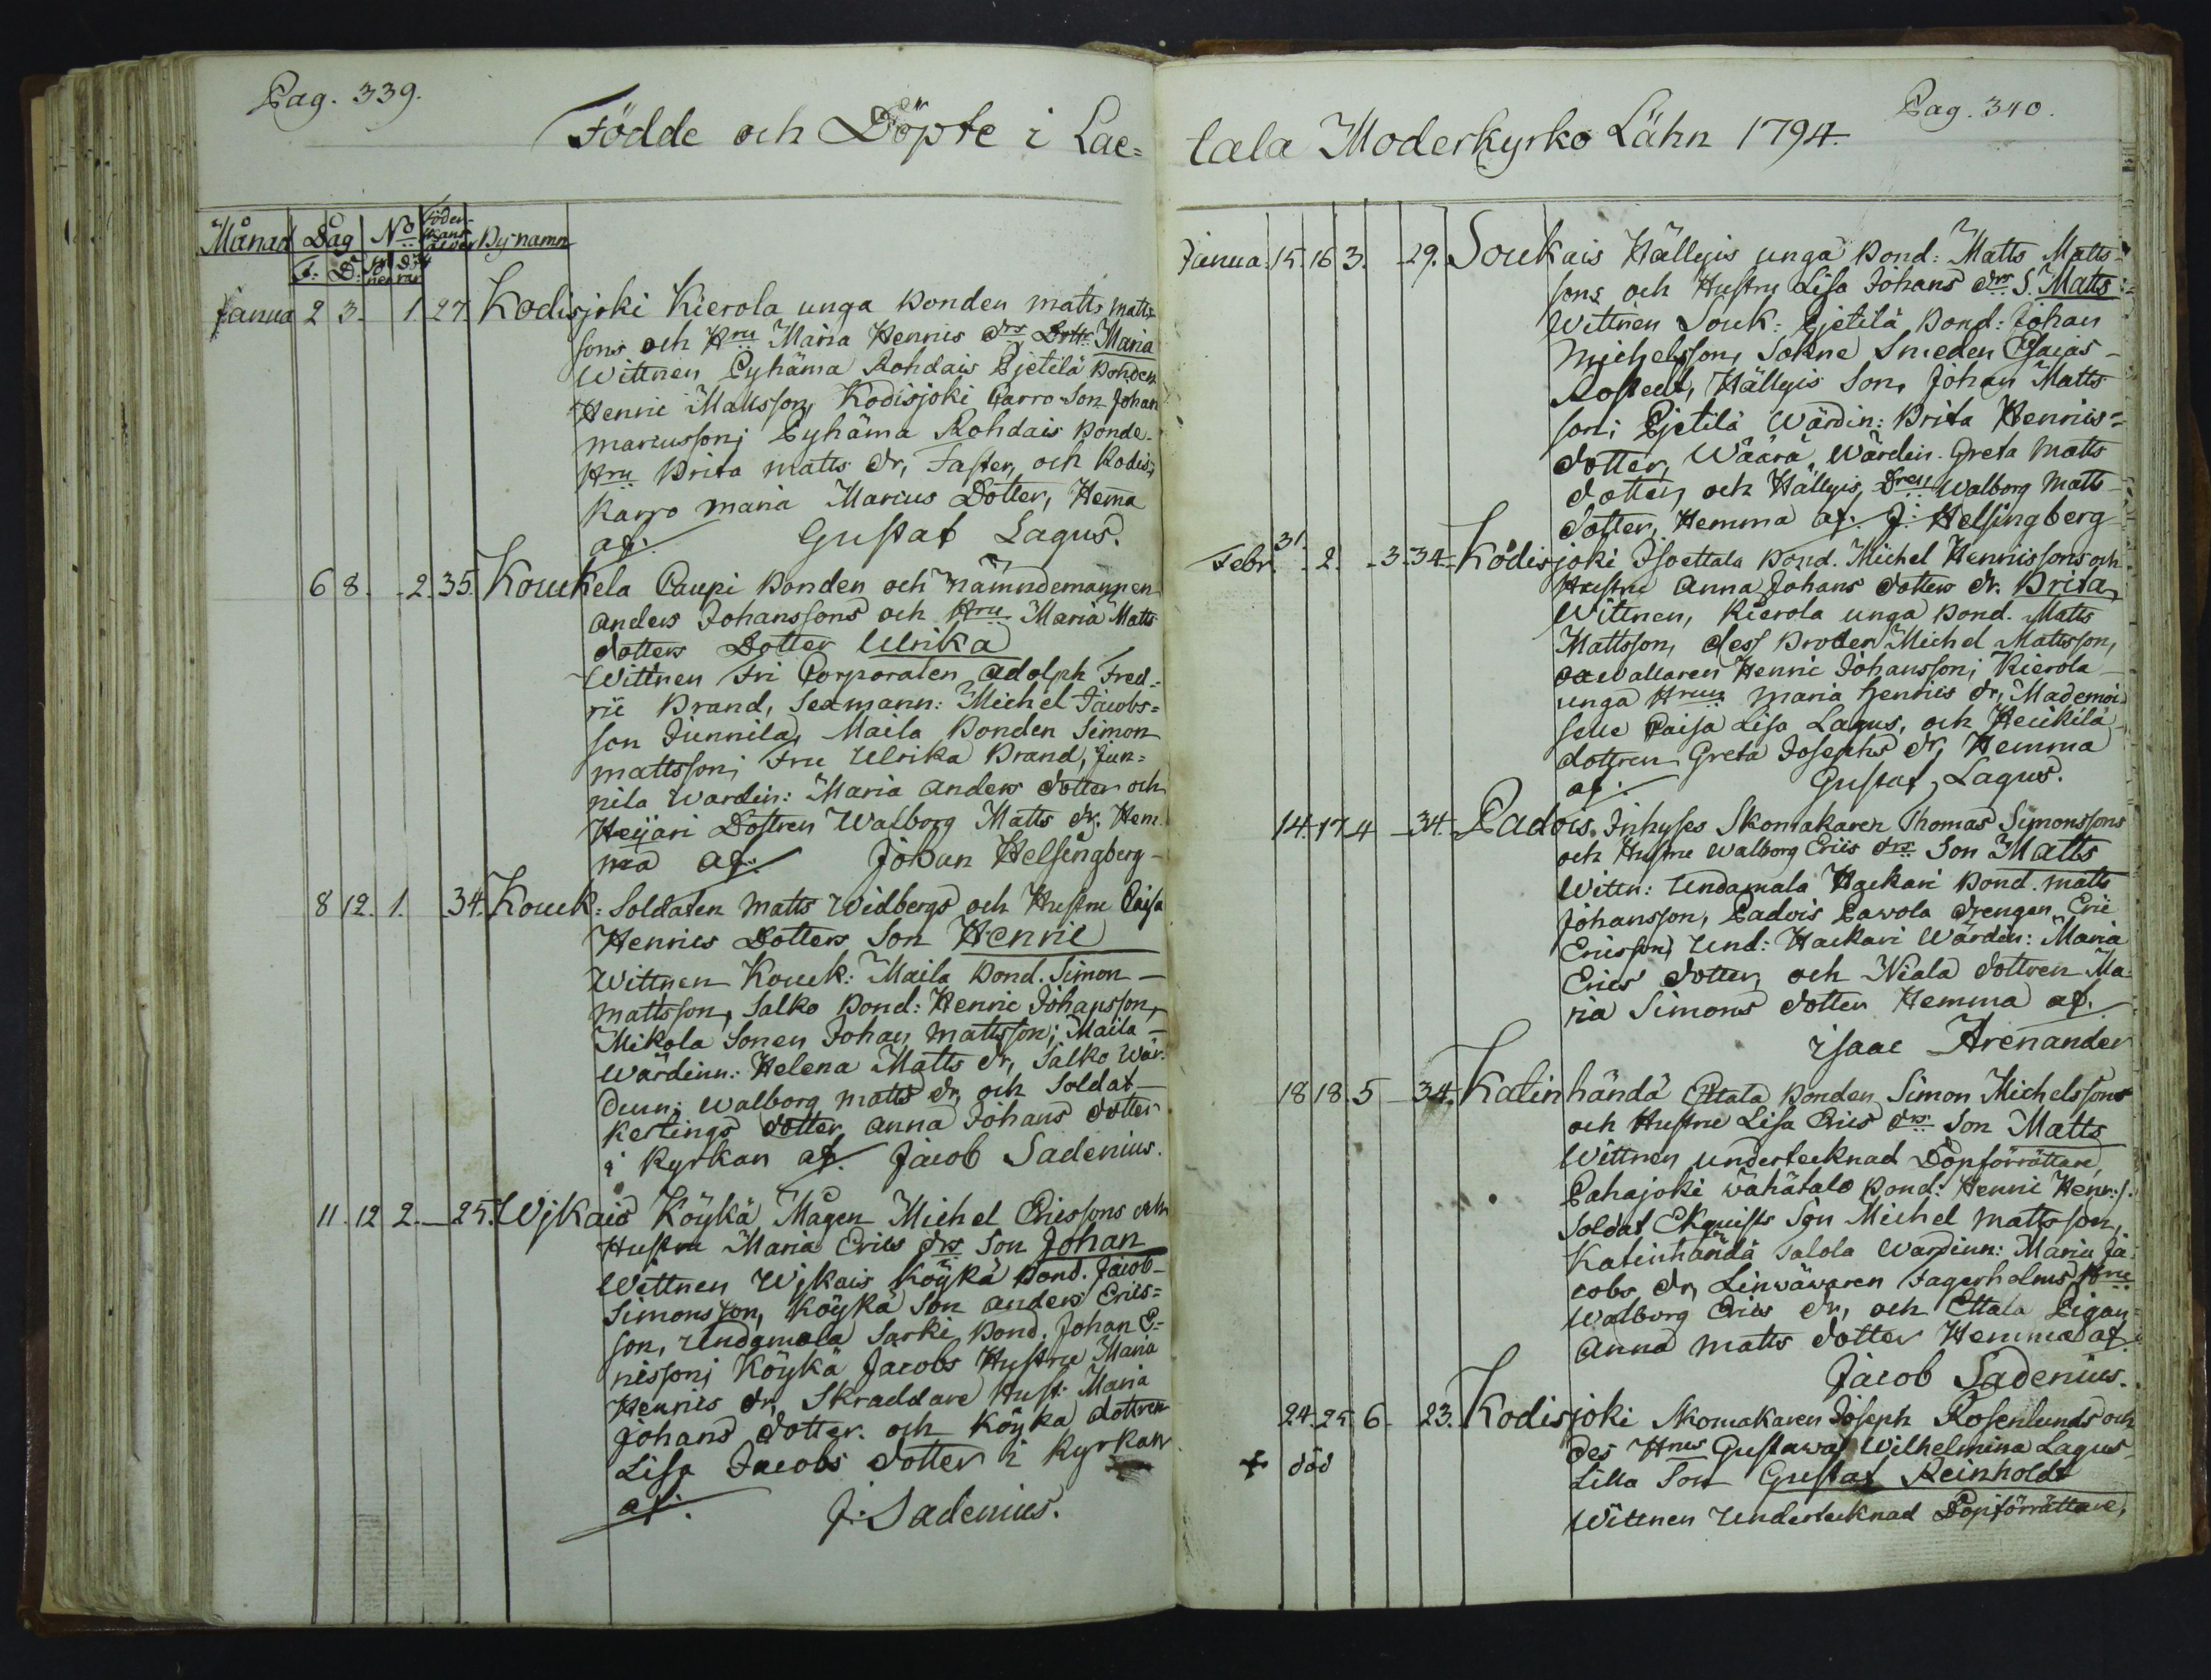 Pag. 339.
Födde och Döpte i Lae=
Månad Dag No Föder-skans ålder By namn
F. D. Sö-ner Dött-rar
Janua 2 3. 1. 27. Kodisjoki Kierola unga Bonden Matts Matts-
sons och Hru Maria Henrics drs Dottr Maria
Wittnen Pyhäma Rohdais Pjetilä Bonden
Henric Mattsson, Kodisjoki Carro Son Johan
Marcusson; Pyhäma Rohdais Bonde-
Hru Brita Matts dr, Faster, och Kodis:
Karro Maria Marcus Dotter, Hema
af. Gustaf Lagus.
6 8. 2. 35. Kouckela Caupi Bonden och Nämndemannen
Anders Johanssons och Hru Maria Matts
dotters Dotter Ulrika
Wittnen Fri Corporalen Adolph Fred=
ric Brand, Sexmann: Michel Jacobs=
son Junnila, Maila Bonden Simon
Mattsson; Fru Ulrika Brand, Jun=
nila Wardin: Maria Anders dotter och
Heijari Dottren Walborg Matts dr. Hem-
ma af. Johan Helsingberg
8 12. 1. 34. Kouck: Soldaten Matts Widbergs och Hustru Caisa
Henrics Dotters Son Henric
Wittnen Kouck: Maila Bond. Simon
Mattsson, Salko Bond: Henric Johansson,
Mikola Sonen Johan Mattsson; Maila
Wärdinn: Helena Matts dr, Salko Wär-
dinn: Walborg Matts dr, och Soldat
Kestings dotter Anna Johans dotter
i Kyrkan af. Jacob Sadenius.
11. 12 2. 25. Wjkais Köykä Mågen Michel Ericssons och
Hustru Maria Erics drs Son Johan
Wittnen Wjkais Köykä Bond. Jacob
Simonsson, Köykä Son Anders Erics=
son, Undamala Sarki Bond. Johan E=
ricsson; Köykä Jacobs Hustru Maria
Henrics dr, Skraddare Hust. Maria
Johans dotter och Köyka dottren
Lisa Jacobs dotter i Kyrkan
af. J. Sadenius.
Pag. 340.
tala Moderkyrko Lähn 1794.
Janua. 15. 16 3. 29. Soukais Hällyis unga Bond: Matts Matts-
sons och Hustru Lisa Johans drs S. Matts
Wittnen Souk: Pjetilä Bond: Johan
Michelsson, Sokne Smeden Esaias
Rostedt, Hällyis Son, Johan Matts
son; Pjetilä Wärdin: Brita Henrics=
dotter, Wäärä Wärdin. Greta Matts
dotter, och Hällyis Walborg Matts
dotter, Hemma af. J. Helsingberg
Febr. 31. 2. 3. 34. Kodisjoki Isoettala Bond. Michel Henricssons och
Hustru Anna Johans dotters dr. Brita,
Wittnen, Kierola unga Bond. Matts
Mattsson, dess Broder Michel Mattsson,
Henric Johansson; Kierola
unga Hrun Maria Henrics dr, Mademoi-
selle Caisa Lisa Lagus, och Heickilä
dottren Greta Josephs dr, Hemma
af. Gustaf Lagus.
14. 17. 4 34. Padois. Inhyses Skomakaren Thomas Simonssons
och Hustru Walborg Erics drs Son Matts
Wittn: Undamala Hackari Bond. Matts
Johansson, Padois Pawola drengen Eric
Ericsson, Und: Hackari Wärdin: Maria
Erics dotter, och Niala dottren Ma=
ria Simons dotter Hemma af.
Isaac Arenander
18 18. 5 34. Katinhändä Ettala Bonden Simon Michelssons
och Hustru Lisa Erics drs Son Matts
Wittnen Undertecknad Döpförrättare,
Pahajoki wähätalo Bond: Henric Henr: s.
Soldat Ekquists Son Michel Mattsson,
Katinhändä Salola Wardinn: Maria Ja=
cobs dr, Linwäwaren Fagerholms Hru
Walborg Erics dr, och Ettala Pigan
Anna Matts dotter Hemma af.
Jacob Sadenius.
24. 25 6. 23. Kodisjoki Skomakaren Joseph Rosenlunds och
des Hrus Gustawa Wilhelmina Lagus
+ död
Lilla Son Gustaf Reinholdt
Wittnen Undertecknad Döpförrättare,